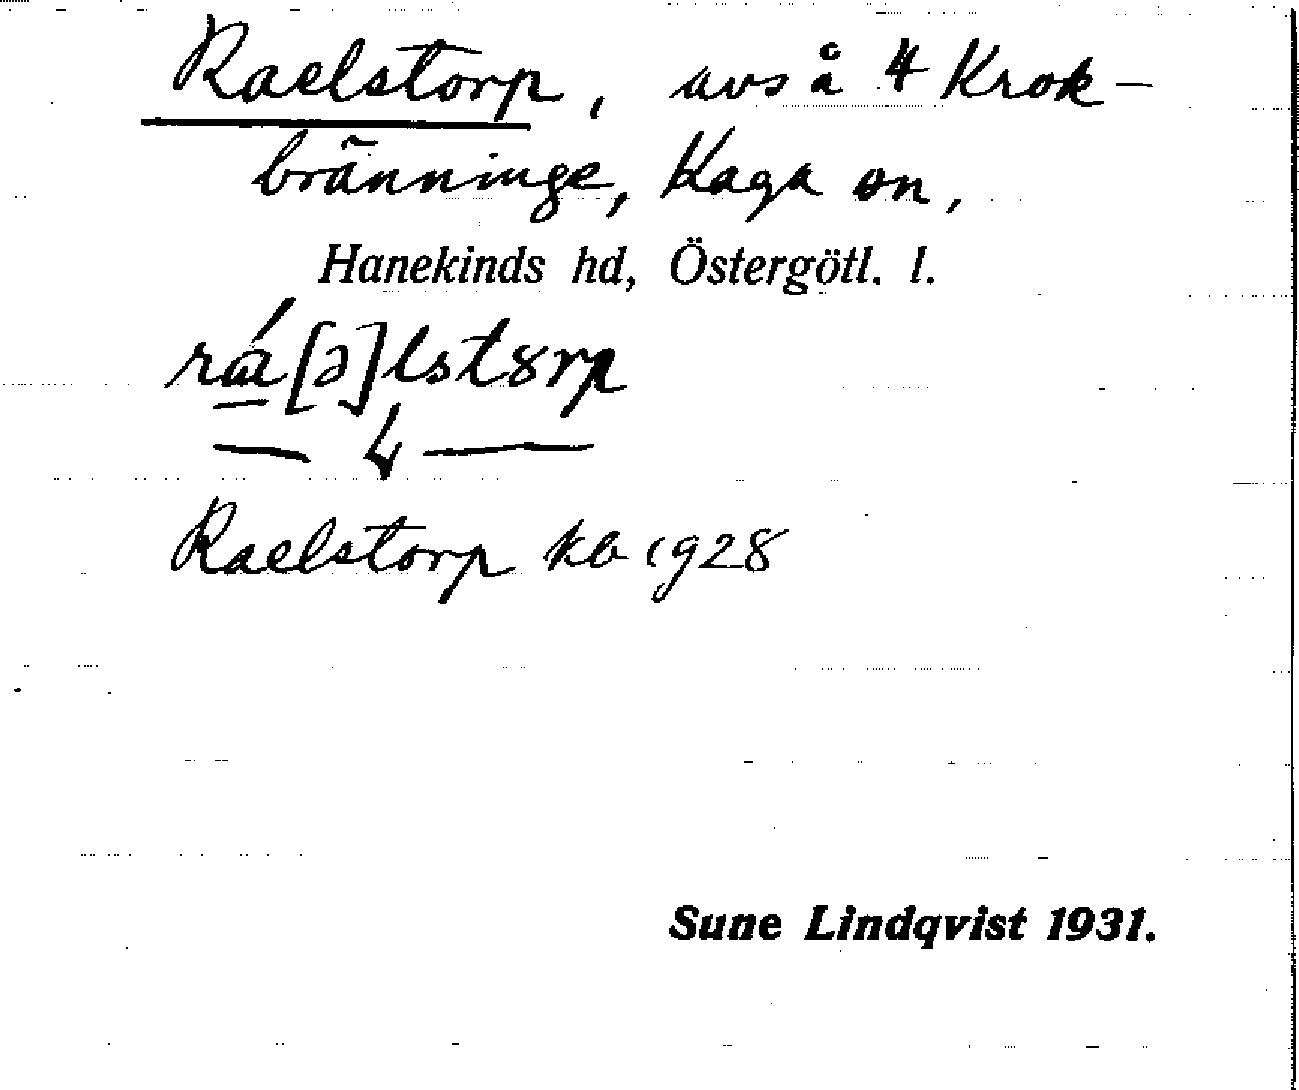 Raelstorp, avs å 4 Krok-
bränninge, Kaga sn,
Hanekinds hd, Östergötl. l.
rá[ə]lstȣrp
4
Raelstorp kb 1928
Sune Lindqvist 1931.